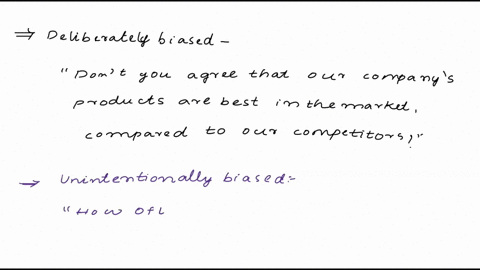 ⇒ Deliberately biased -
"Don't you agree that our company's
products are best in the market,
compared to our competitors?"
→ Unintentionally biased:-
"How oft